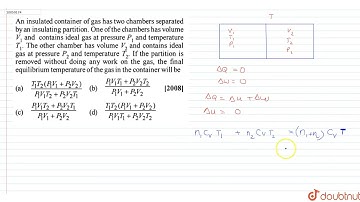 An insulated container of gas has two chambers separated
by an insulating partition. One of the chambers has volume
V₁ and contains ideal gas at pressure P₁ and temperature
T₁. The other chamber has volume V₂ and contains ideal
gas at pressure P₂ and temperature T₂. If the partition is
removed without doing any work on the gas, the final
equilibrium temperature of the gas in the container will be
(a) T₁T₂(P₁V₁ + P₂V₂) / P₁V₁T₂ + P₂V₂T₁ (b) P₁V₁T₁ + P₂V₂T₂ / P₁V₁ + P₂V₂ [2008]
(c) P₁V₁T₂ + P₂V₂T₁ / P₁V₁ + P₂V₂ (d) T₁T₂(P₁V₁ + P₂V₂) / P₁V₁T₁ + P₂V₂T₂
T
V₁ V₂
T₁ T₂
P₁ P₂
ΔQ = 0
ΔW = 0
ΔQ = ΔU + ΔW
ΔU = 0
n₁ Cᵥ T₁ + n₂ Cᵥ T₂ = (n₁+n₂) Cᵥ T
doubtnut